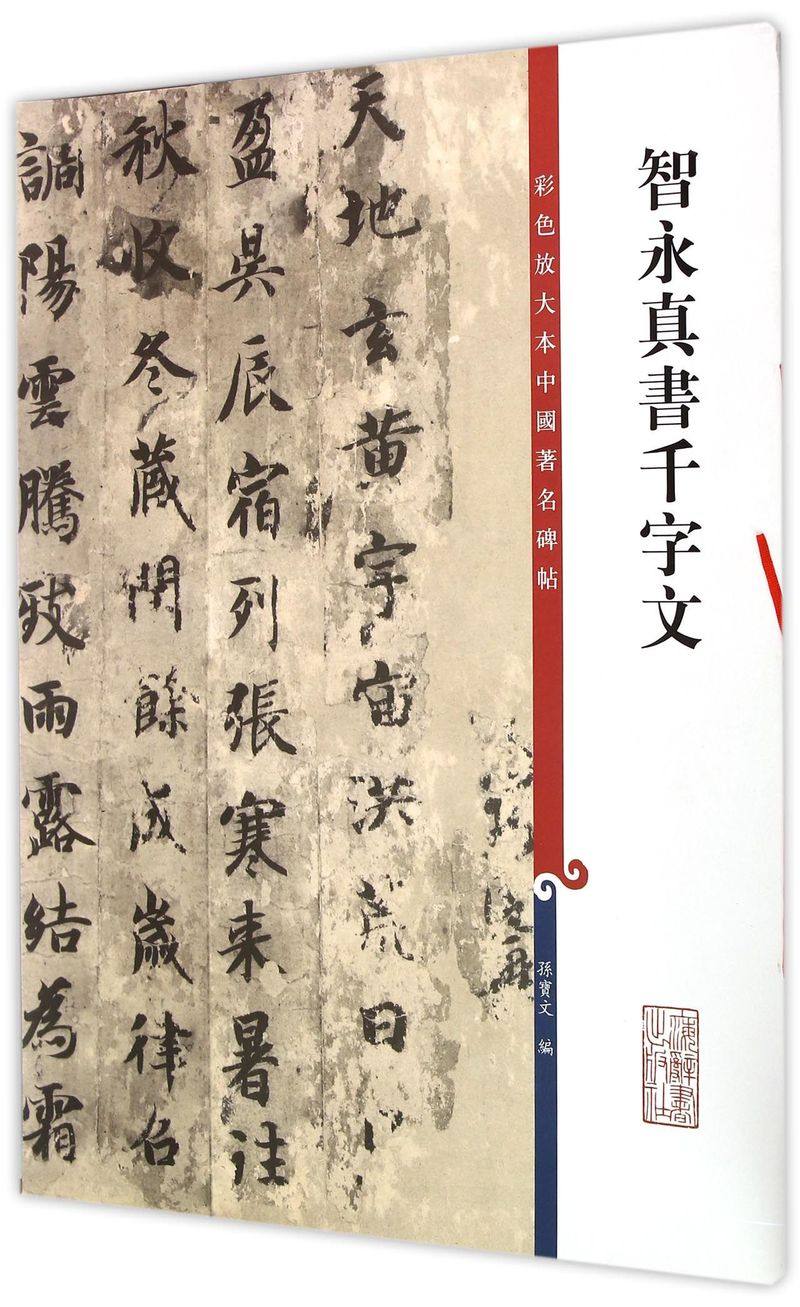 智永真書千字文
上海辭書
出版社
彩色放大本中國著名碑帖
孫寶文 編
天地玄黃宇宙洪荒日
盈昃辰宿列張寒来暑往
秋收冬藏閏餘成歲律召
調陽雲騰致雨露結為霜